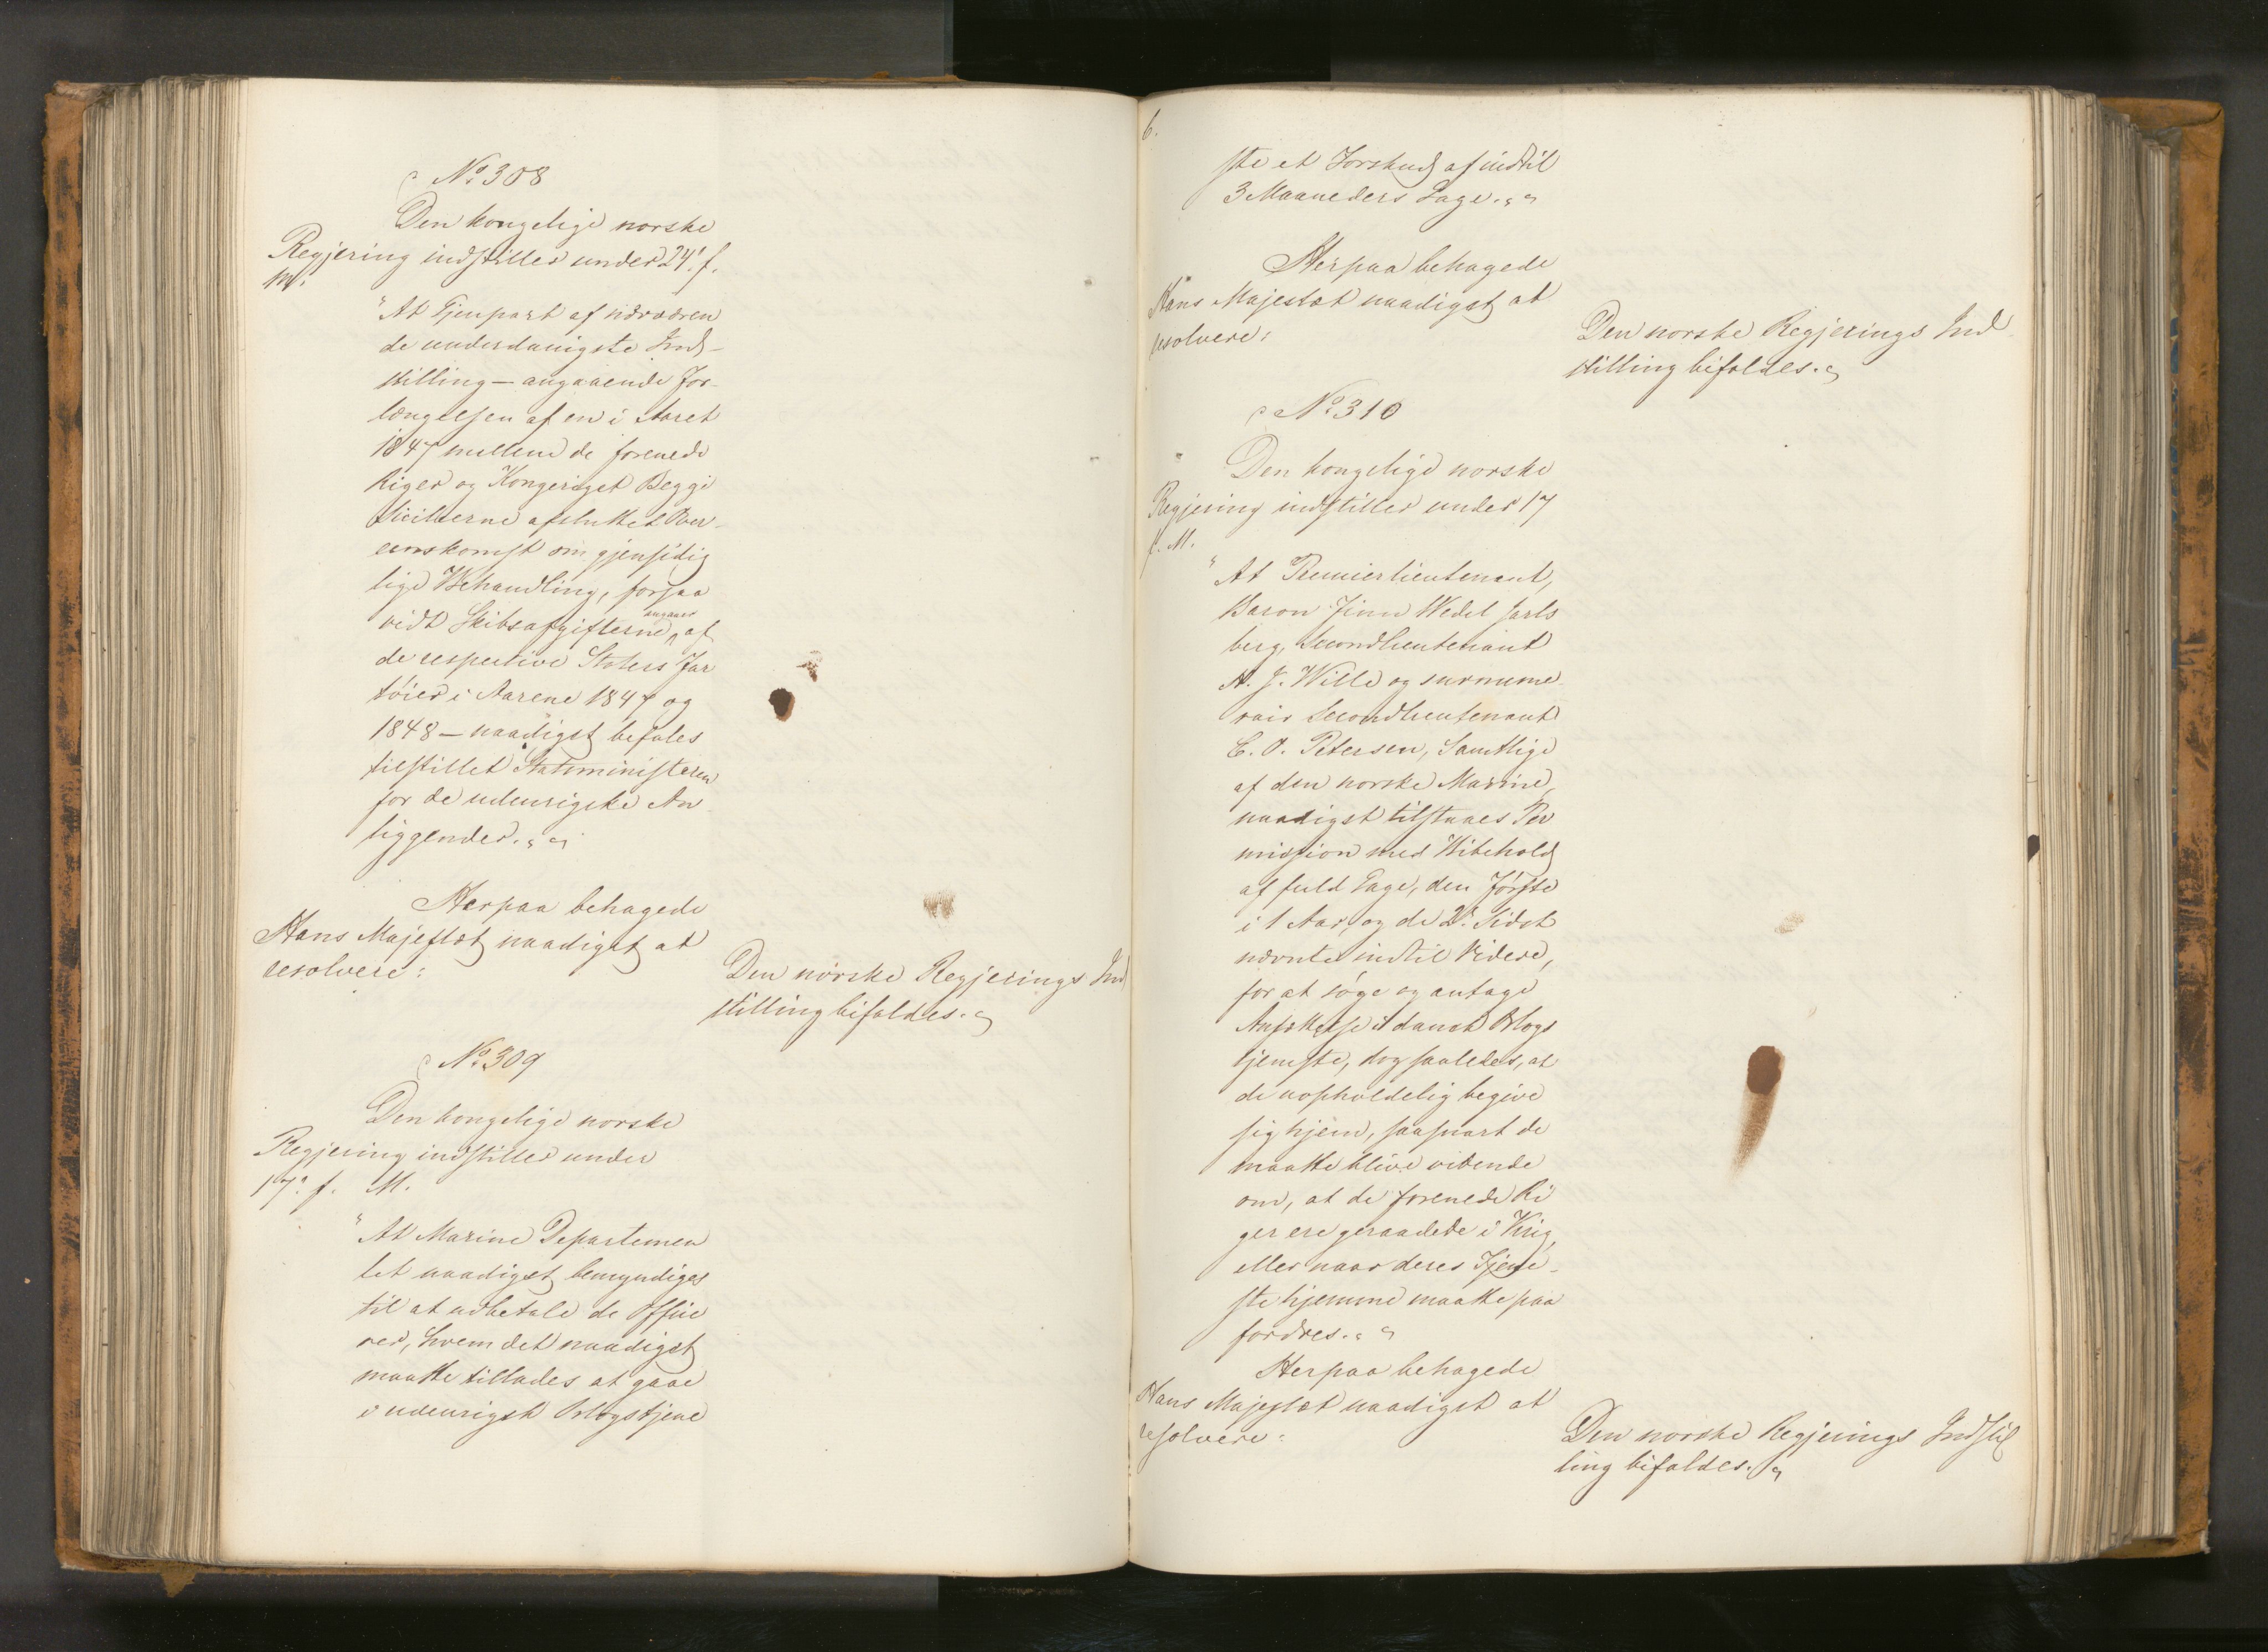 No. 308
Den kongelige norske
Regjering indstiller under 24. f.
M.
"At Gjenpart af nærværen
de underdanigste Ind-
stilling – angaaende For-
længelsen af en i Aaret
1847 mellem de forenede
Riger og Kongeriget Begge
Sicilierne afsluttet Over-
eenskomst om gjensidig
lige Behandling, forsaa
vidt Skibsafgifterne angaaer, af
de respective Staters Far
töier i Aarene 1847 og
1848 – naadigst befales
tilstillet Statsministeren
for de udenrigske An
liggender."
Herpaa behagede
Hans Majestæt naadigst at
resolvere:
Den norske Regjerings Ind
stilling bifaldes.
No. 309
Den kongelige norske
Regjering indstiller under
17. f. M.
"At Marine Departemen
tet naadigst bemyndiges
til at udbetale de Office
rer, hvem det naadigst
maatte tillades at gaae
i udenrigsk Orlogstjene
6.
ste et Forskud af indtil
3 Maaneders Gage."
Herpaa behagede
Hans Majestæt naadigst at
resolvere:
Den norske Regjerings Ind
stilling bifaldes.
No. 310
Den kongelige norske
Regjering indstiller under 17
f. M.
"At Premierlieutenant,
Baron Finn Wedel Jarls
berg, Secondlieutenant
A. J. Wille og surnume
rair Secondlieutenant
C. O. Petersen, Samtlige
af den norske Marine,
naadigst tilstaaes Per
mission med Bibehold
af fuld Gage, den Förste
i 1 Aar, og de 2de Sidst
nævnte indtil Videre,
for at söge og antage
Ansættelse i dansk Orlogs
tjeneste, dog saaledes, at
de uopholdelig begive
sig hjem, saasnart de
maatte blive vidende
om, at de forenede Ri
ger ere geraadede i Krig,
eller naar deres Tjene-
ste hjemme maatte paa
fordres."
Herpaa behagede
Hans Majestæt naadigst at
resolvere:
Den norske Regjerings Indstil
ling bifaldes.